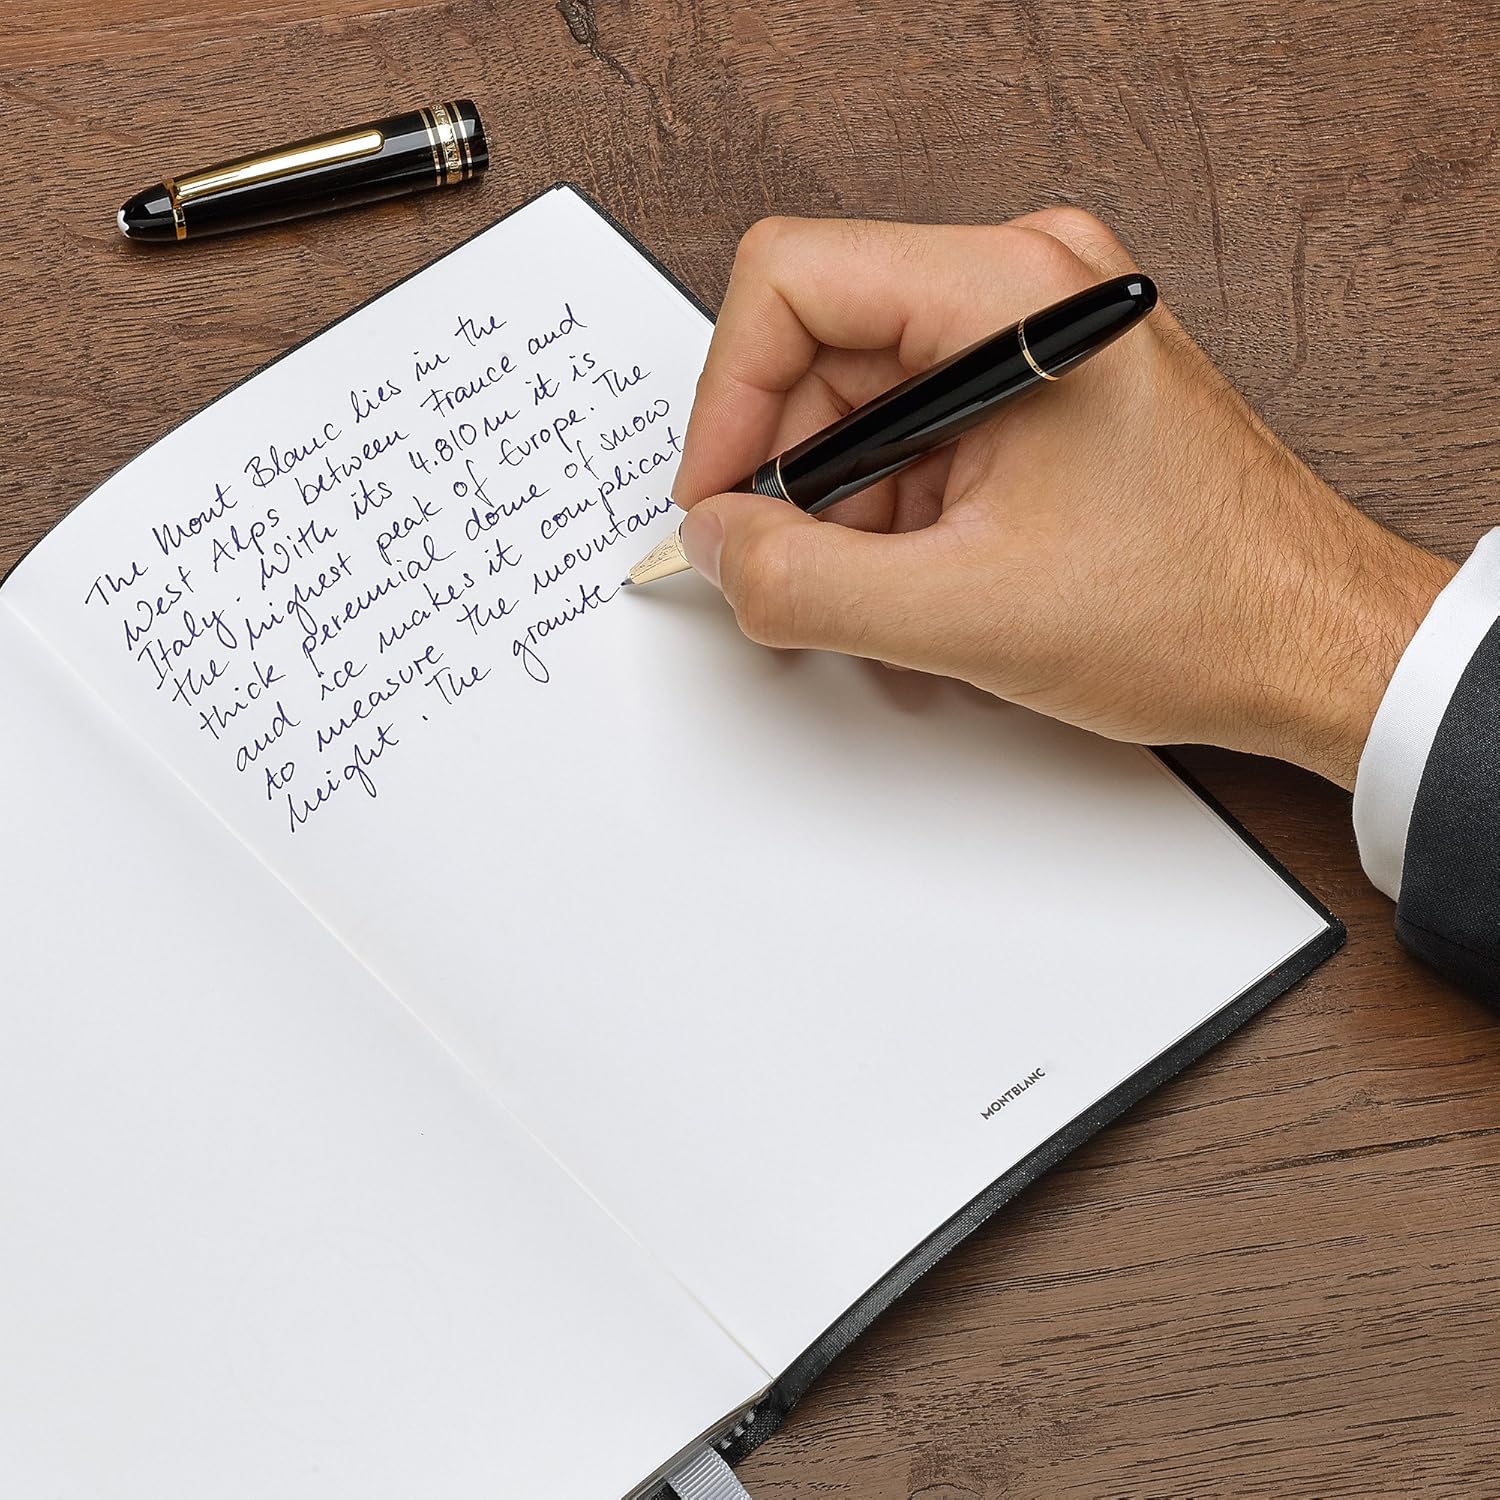 The Mont Blanc lies in the
West Alps between France and
Italy. With its 4.810m it is
the highest peak of Europe. The
thick perennial dome of snow
and ice makes it complicat
to measure the mountain
height. The granite
MONTBLANC